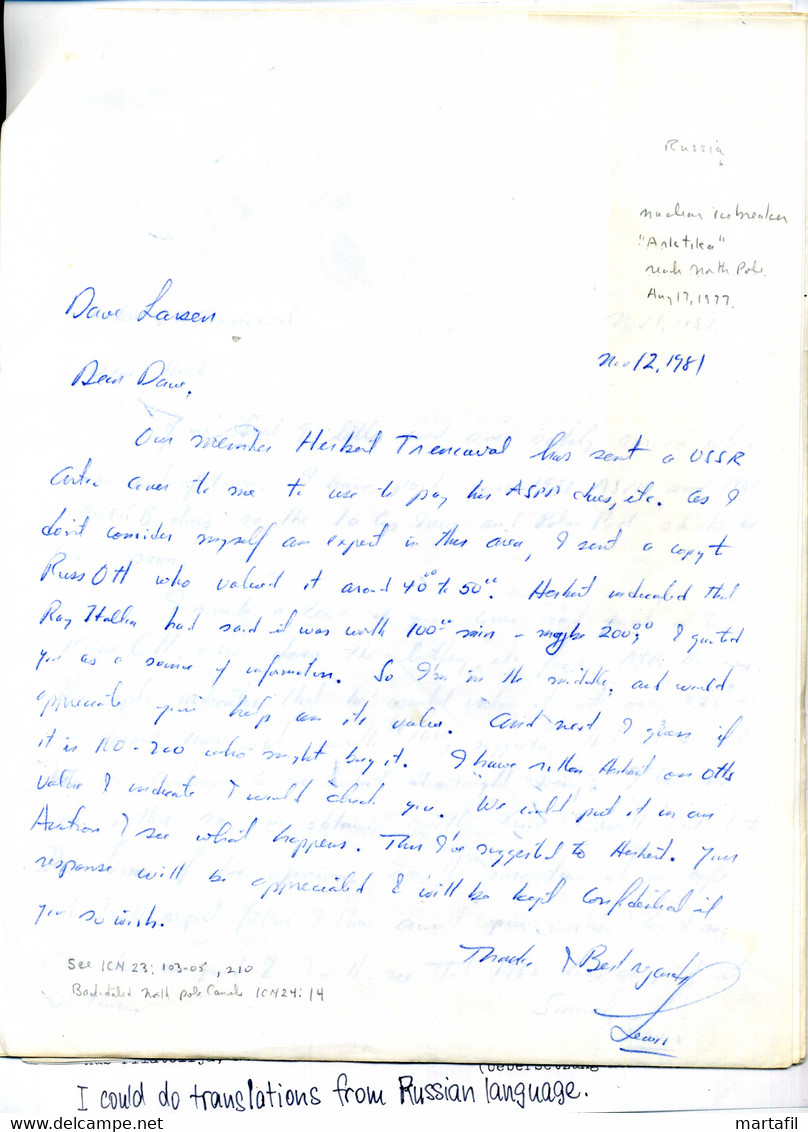 Russia
nuclear icebreaker
"Arktika"
reach North Pole
Aug 17, 1977
Dave Larsen
Nov 12, 1981
Dear Dave,
Our member Herbert Trenchaval has sent a USSR
Arctic cover to me to use to pay his ASPP dues, etc. As I
don't consider myself an expert in this area, I sent a copy to
Russ Ott who valued it around 40⁰⁰ to 50⁰⁰. Herbert indicated that
Ray had said it was worth 100⁰⁰ min - maybe 200⁰⁰; I quoted
you as a source of information. So I'm in the middle, and would
appreciate your help on its value. And next I guess if
it is 100-200 who might buy it. I have written Herbert on Otts
value & indicate I would check you. We could put it in our
Auction & see what happens. This I've suggested to Herbert. Your
response will be appreciated & will be kept confidential if
you so wish.
Thanks & Best regards
See ICN 23: 103-05, 210
Back-dated North Pole Cancels ICN 24: 14
I could do translations from Russian language.
martafil